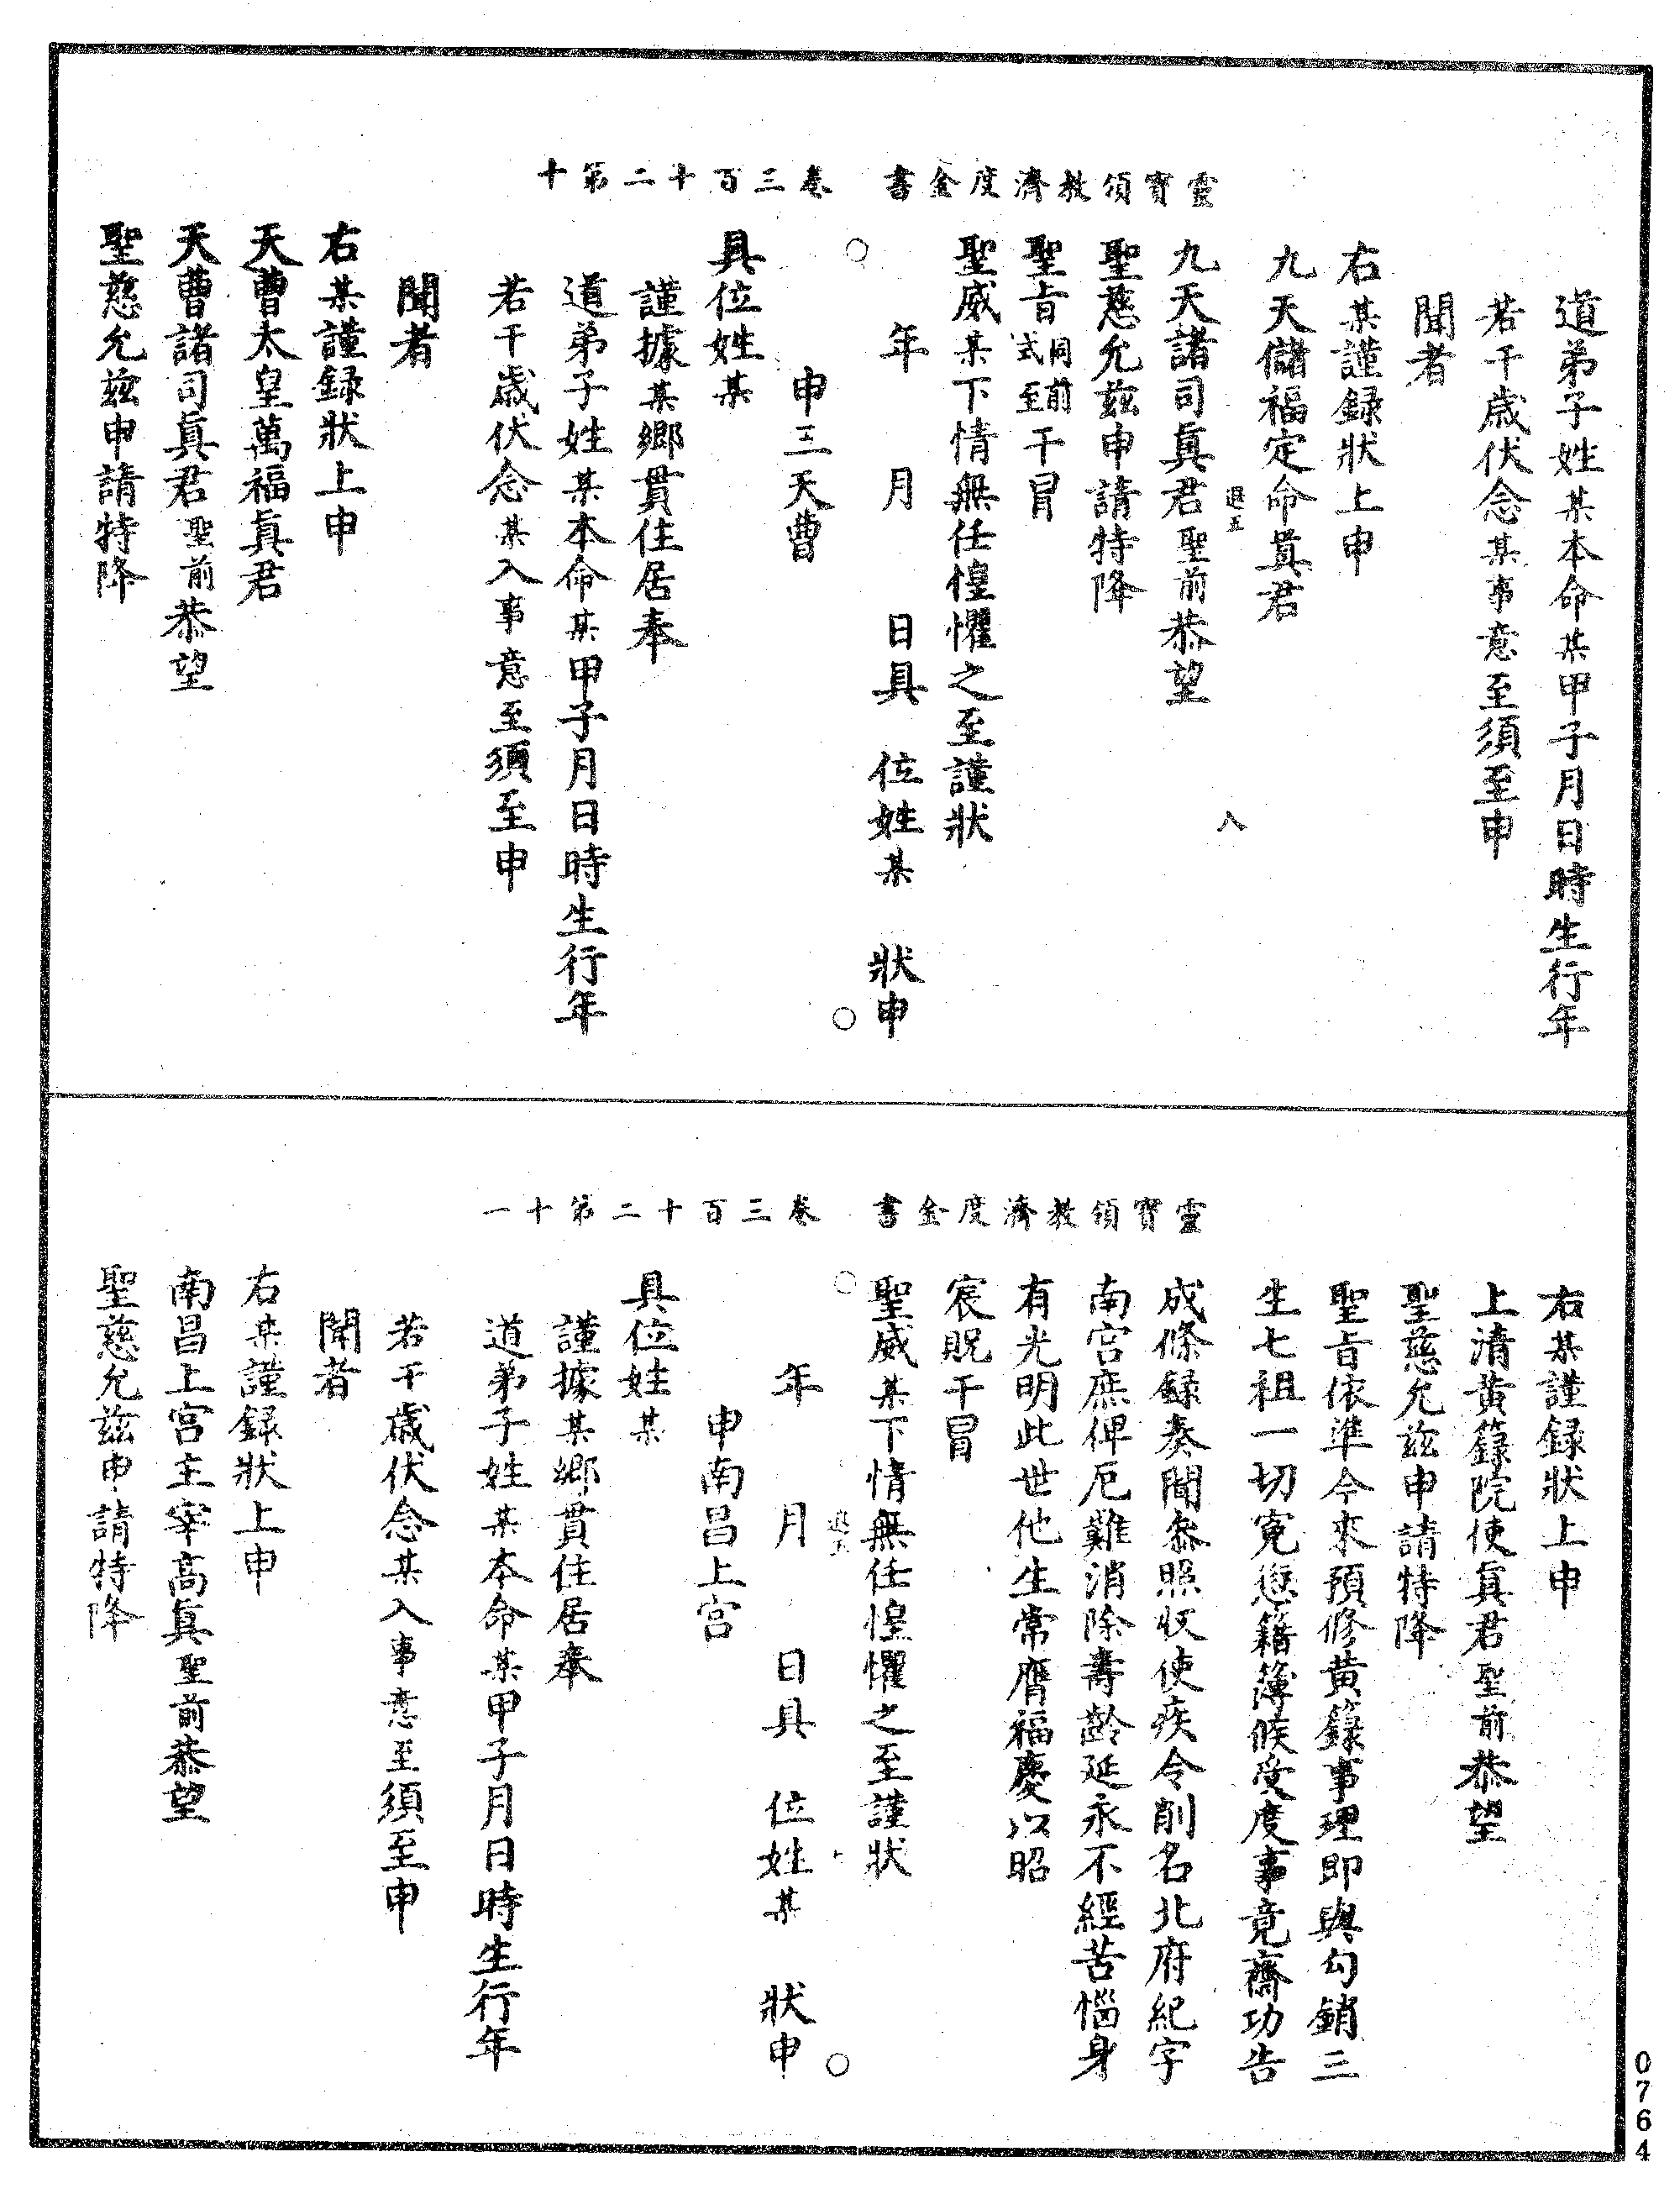 靈寶領教濟度金書　卷三百二十第十
道弟子姓某本命某甲子月日時生行年
若干歲伏念某事意至須至申
聞者
右某謹録狀上申
九天儲福定命眞君
退五　八
九天諸司眞君聖前恭望
聖慈允茲申請特降
聖旨同前式至干冒
聖威某下情無任惶懼之至謹狀
年　月　日具　位姓某　狀申
申三天曹
具位姓某
謹據某鄉貫住居奉
道弟子姓某本命某甲子月日時生行年
若干歲伏念某入事意至須至申
聞者
右某謹録狀上申
天曹太皇萬福眞君
天曹諸司眞君聖前恭望
聖慈允茲申請特降
靈寶領教濟度金書　卷三百二十第十一
右某謹録狀上申
上清黄籙院使眞君聖前恭望
聖慈允茲申請特降
聖旨依準今來預修黄籙事理即與勾銷三
生七祖一切寃愆籍簿候受度事竟齋功告
成條録奏聞叅照收使疾令削名北府紀字
南宫庶俾厄難消除壽齡延永不經苦惱身
有光明此世他生常膺福慶以昭
宸貺干冒
聖威某下情無任惶懼之至謹狀
退五
年　月　日具　位姓某　狀申
申南昌上宫
具位姓某
謹據某鄉貫住居奉
道弟子姓某本命某甲子月日時生行年
若干歲伏念某入事意至須至申
聞者
右某謹録狀上申
南昌上宫主宰高眞聖前恭望
聖慈允茲申請特降
0764